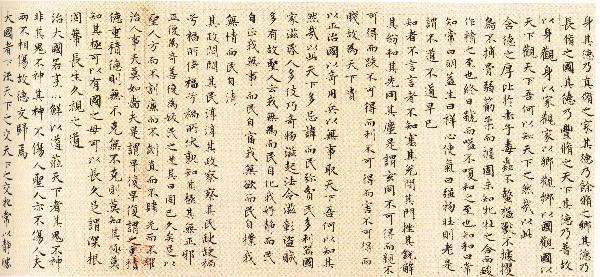 身其德乃真脩之家其德乃餘脩之鄉其德乃
長脩之國其德乃豐脩之天下其德乃普故
以身觀身以家觀家以鄉觀鄉以國觀國以
天下觀天下吾何以知天下之然哉以此
含德之厚比於赤子毒蟲不螫猛獸不據攫
鳥不搏骨弱筋柔而握固未知牝牡之合而
作精之至也終日號而嗌不嗄和之至也知和曰常
知常曰明益生曰祥心使氣曰強物壯則老是
謂不道不道早已
知者不言言者不知塞其兌閉其門挫其銳解
其紛和其光同其塵是謂玄同不可得而親不
可得而踈不可得而利不可得而害不可得而
賤故為天下貴
以正治國以奇用兵以無事取天下吾何以知
然哉以此天下多忌諱而民彌貧民多利器國
家滋昬人多伎巧奇物滋起法令滋彰盜賊
多有故聖人云我無為而民自化我好静而民
自正我無事而民自富我無欲而民自樸我
無情而民自清
其政悶悶其民淳淳其政察察其民缺缺禍
兮福所倚福兮禍所伏孰知其極其無正邪
正復為奇善復為祅民之迷其日固已久矣是以
聖人方而不割廉而不劌直而不肆光而不耀
治人事天莫如嗇夫唯嗇是謂早復早復謂之重積
德重積德則無不克無不克則莫知其極莫
知其極可以有國之母可以長久是謂深根
固蔕長生久視之道
治大國若烹小鮮以道莅天下者其鬼不神
非其鬼不神其神不傷人聖人亦不傷人夫
兩不相傷故德交歸焉
大國者下流天下之交天下之交牝常以静勝